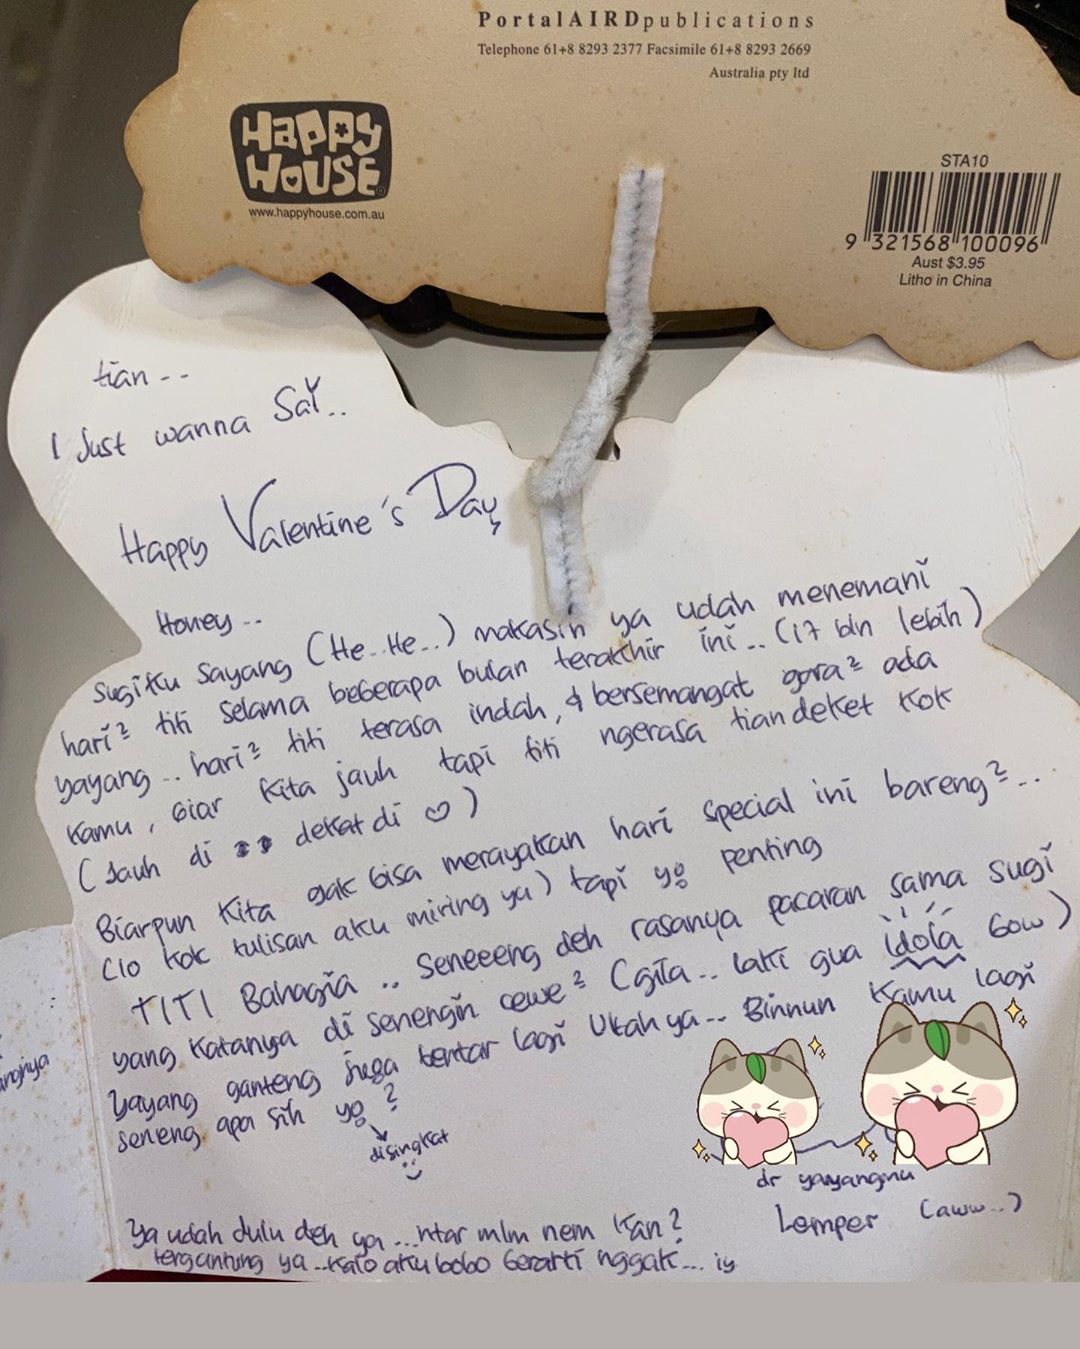 PortalAIRDpublications
Telephone 61+8 8293 2377 Facsimile 61+8 8293 2669
Australia pty ltd
Happy House
www.happyhouse.com.au
STA10
9 321568 100096
Aust $3.95
Litho in China
tian --
I Just wanna Say..
Happy Valentine's Day
Honey --
sugiku sayang (He..He..) makasih ya udah menemani
hari² titi selama beberapa bulan terakhir ini.. (17 bln lebih)
yayang .. hari² titi terasa indah, & bersemangat gara² ada
kamu, biar kita jauh tapi titi ngerasa tian deket kok
(Jauh di dekat di ♡)
Biarpun kita gak bisa merayakan hari special ini bareng²...
(lo kok tulisan aku miring ya) tapi yg penting
TITI Bahagia .. seneeeng deh rasanya pacaran sama sugi
yang katanya di senengin cewe² (gila.. laki gua idola bow)
Yayang ganteng juga bentar lagi Ultah ya.. Binnun kamu lagi
seneng apa sih yg ?
disingkat
dr yayangmu
Lemper (aww..)
Ya udah dulu deh ya ...ntar mlm nem kan?
tergantung ya ..kalo aku bobo berarti nggak...